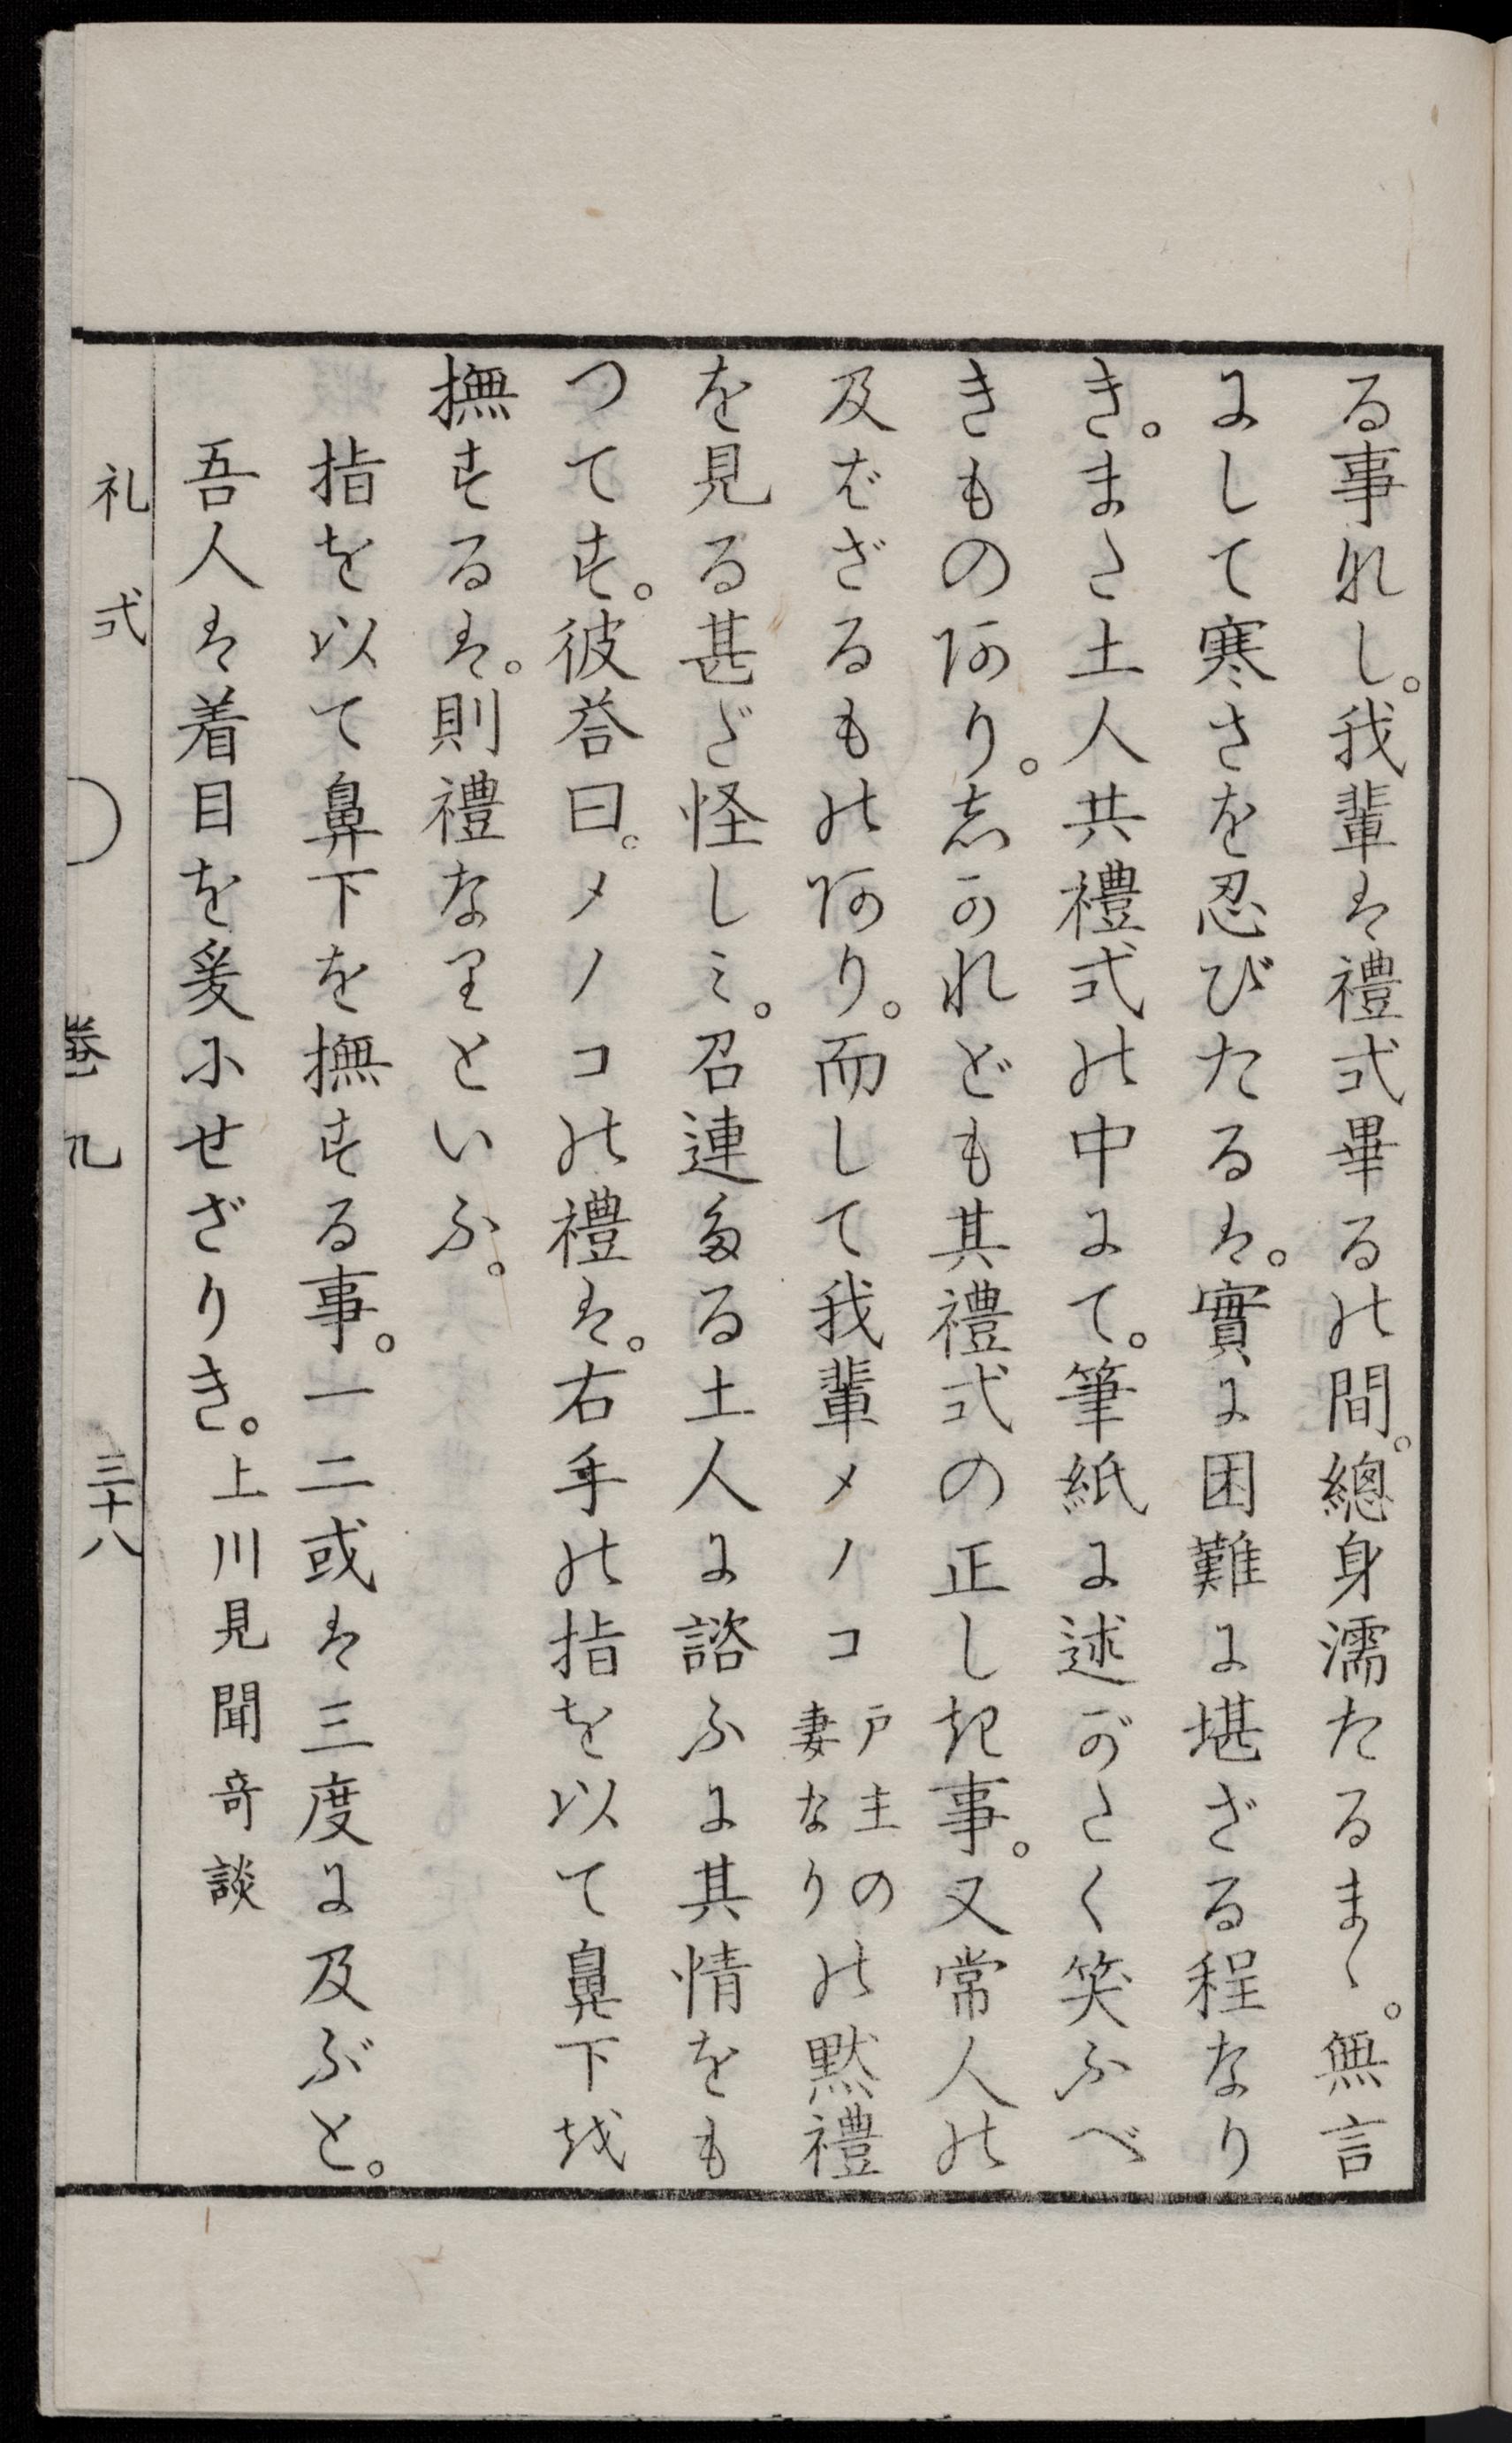 る事れし。我輩は禮式畢るの間。總身濡たるまゝ。無言
にして寒さを忍びたるは。實に困難に堪ざる程なり
き。また土人共禮式の中にて。筆紙に述がたく笑ふべ
きものあり。しかれども其禮式の正しき事。又常人の
及ばざるものあり。而して我輩メノコ戸主の妻なりの黙禮
を見る甚だ怪しミ。召連たる土人に諮ふに其情をも
つてす。彼荅曰。メノコの禮は。右手の指を以て鼻下を
撫するは。則禮なりといふ。
指を以て鼻下を撫する事。一二或は三度に及ぶと。
吾人は着目を爰にせざりき。上川見聞竒談
礼式 巻九 三十八